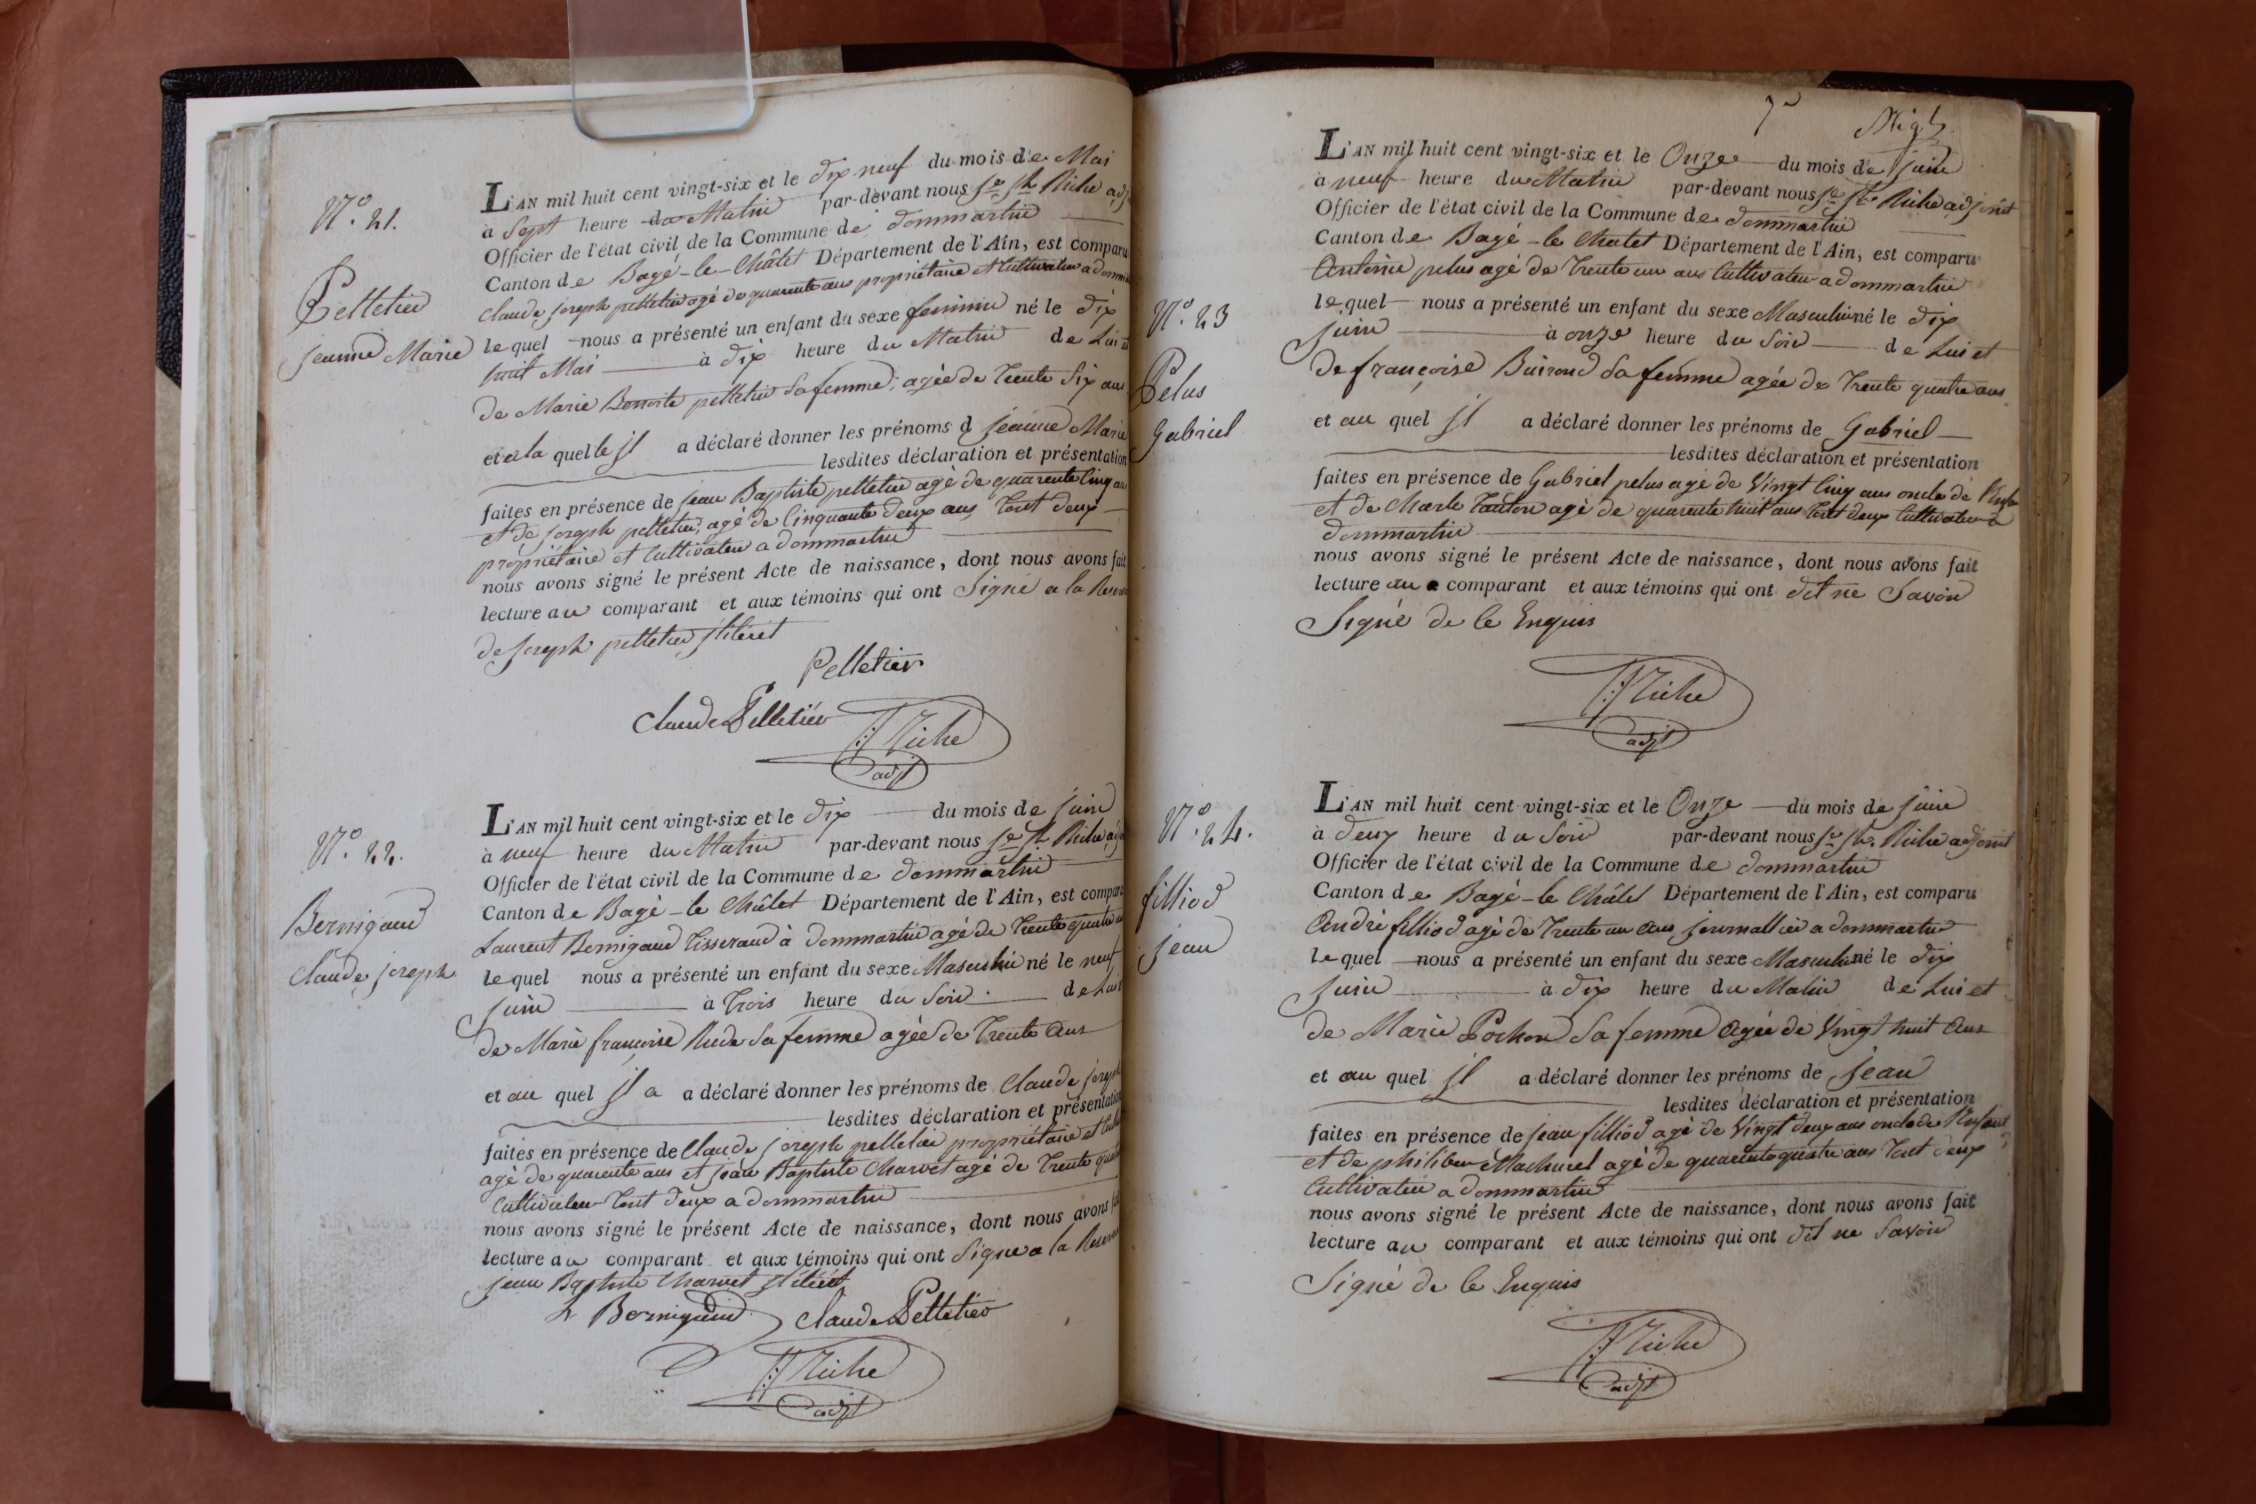 N.º 21.
Pelletier
jeanne Marie
L'AN mil huit cent vingt-six et le dix neuf du mois de Mai
à Sept heure du Matin par-devant nous Riche
Officier de l'état civil de la Commune de dommartin
Canton de Bagé-le-Châtel Département de l'Ain, est comparu
Claude joseph pelletier agé de quarente ans propriétaire et Cultivateur a
lequel nous a présenté un enfant du sexe feminin né le dix
huit Mai à dix heure du Matin de Lui
de Marie Benoite pelletier Sa femme, agée de trente Six ans
et a la quelle jl a déclaré donner les prénoms d jeanne Marie
lesdites déclaration et présentation
faites en présence de jean Baptiste pelletier agé de quarente Cinq ans
et de joseph pelletier, agé de Cinquante deux ans, tout deux
propriétaire et Cultivateur a dommartin
nous avons signé le présent Acte de naissance, dont nous avons fait
lecture au comparant et aux témoins qui ont Signé a la Reserve
de joseph pelletier jlliteret
Pelletier
Claude Pelletier
Riche
adjt
N.º 22.
Bernigaud
Claude joseph
L'AN mil huit cent vingt-six et le dix du mois de juin
à neuf heure du Matin par-devant nous Riche
Officier de l'état civil de la Commune de dommartin
Canton de Bagé-le Châtel Département de l'Ain, est comparu
Laurent Bernigaud tisserand à dommartin agé de trente quatre
lequel nous a présenté un enfant du sexe Masculin né le neuf
juin à trois heure du Soir de Lui
de Marie françoise Sa femme agée de trente ans
et au quel jl a a déclaré donner les prénoms de Claude joseph
lesdites déclaration et présentation
faites en présence de Claude joseph pelletier propriétaire et
agé de quarente ans et jean Baptiste Charvet agé de trente
Cultivateur tout deux a dommartin
nous avons signé le présent Acte de naissance, dont nous avons
lecture au comparant et aux témoins qui ont Signe a la Reserve
jean Baptiste Charvet jlliteret
L Bernigaud Claude Pelletier
Riche
adjt
7e
N.º 23
Pelus
Gabriel
L'AN mil huit cent vingt-six et le Onze du mois de juin
à neuf heure du Matin par-devant nous Riche adjoint
Officier de l'état civil de la Commune de dommartin
Canton de Bagé-le Chatel Département de l'Ain, est comparu
Antoine pelus agé de trente un ans Cultivateur a dommartin
lequel nous a présenté un enfant du sexe Masculin né le dix
juin à onze heure du Soir de Lui et
de françoise Buirond Sa femme agée de trente quatre ans
et au quel jl a déclaré donner les prénoms de Gabriel
lesdites déclaration et présentation
faites en présence de Gabriel pelus agé de Vingt Cinq ans oncle de
et de Charle agé de quarente huit ans tout deux Cultivateur a
dommartin
nous avons signé le présent Acte de naissance, dont nous avons fait
lecture au comparant et aux témoins qui ont dit ne Savoir
Signé de ce Enquis
Riche
adjt
N.º 24.
filliod
jean
L'AN mil huit cent vingt-six et le Onze du mois de juin
à deux heure du Soir par-devant nous Riche adjoint
Officier de l'état civil de la Commune de dommartin
Canton de Bagé-le Châtel Département de l'Ain, est comparu
André filliod agé de trente un ans journallier a dommartin
lequel nous a présenté un enfant du sexe Masculin né le dix
juin à dix heure du Matin de Lui et
de Marie Pochon Sa femme agée de Vingt huit ans
et au quel jl a déclaré donner les prénoms de jean
lesdites déclaration et présentation
faites en présence de jean filliod agé de Vingt deux ans oncle de
et de philiber Machurel agé de quarente quatre ans tout deux
Cultivateur a dommartin
nous avons signé le présent Acte de naissance, dont nous avons fait
lecture au comparant et aux témoins qui ont dit ne Savoir
Signé de ce Enquis
Riche
adjt